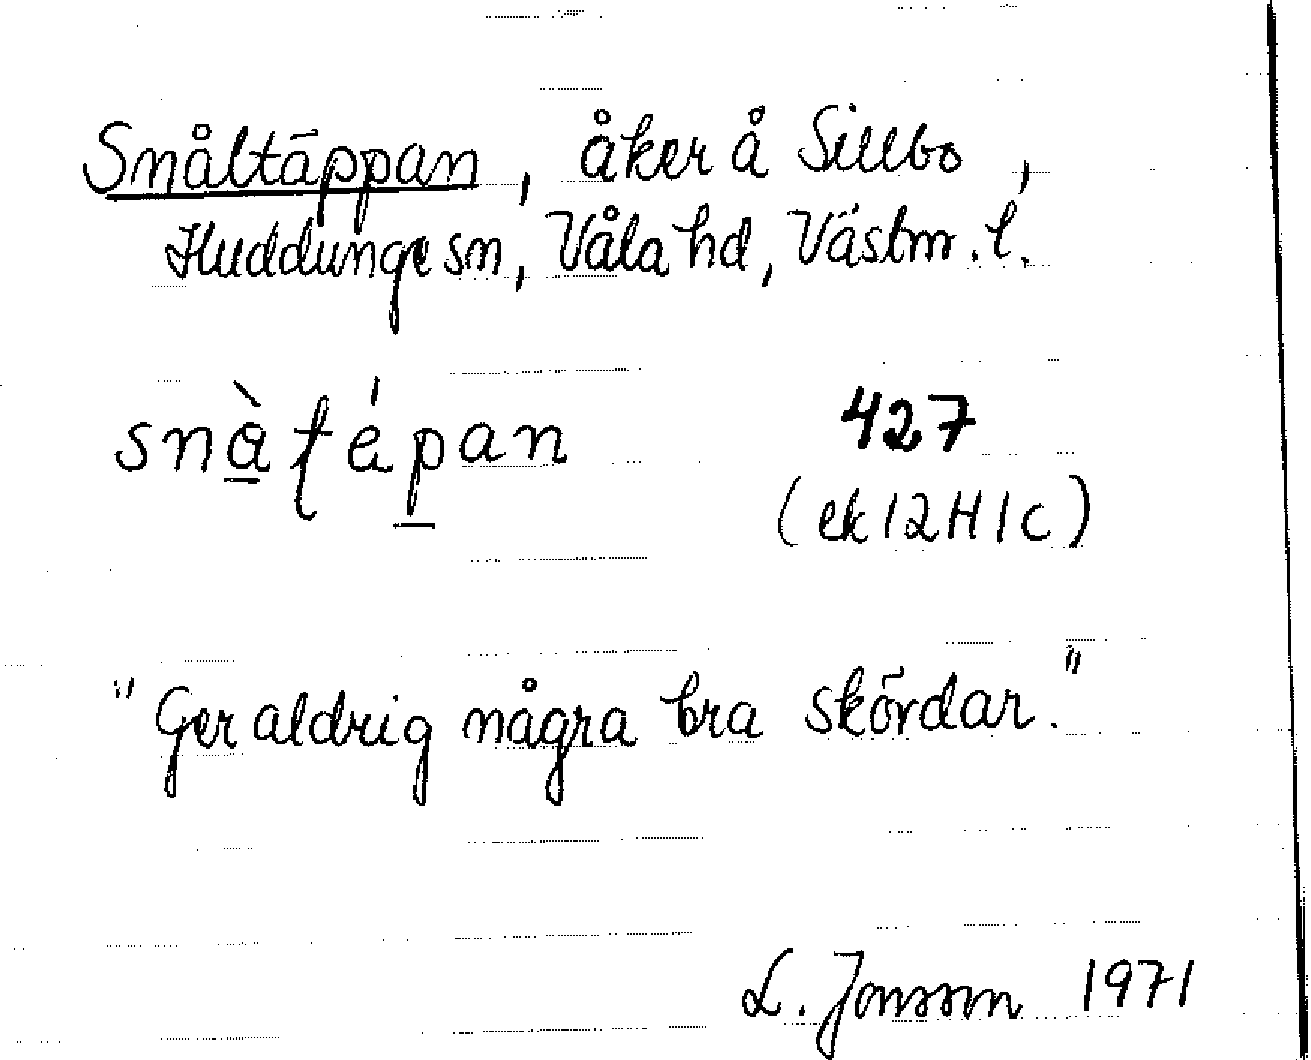 Snåltäppan, åker å Sillbo,
Huddunge sn, Våla hd, Västm. l.
snàtépan
427
(ek 12H1c)
"Ger aldrig några bra skördar."
L. Jonsson 1971